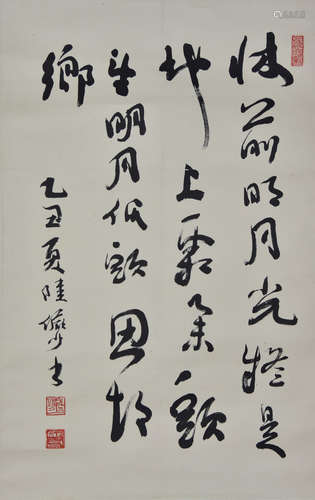 牀前明月光疑是
地上霜舉頭
望明月低頭思故
鄉
乙丑夏陸儼少書